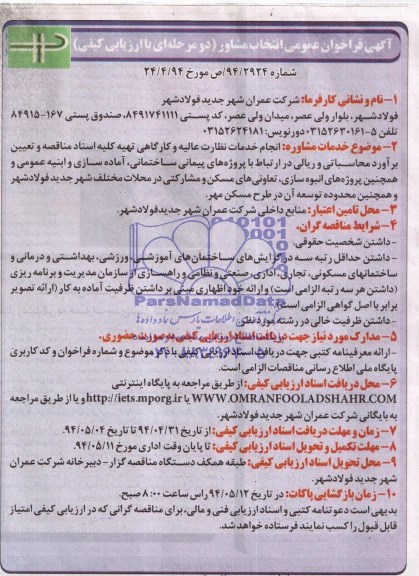 آگهی فراخوان عمومی انتخاب مشاور (دو مرحله‌ای با ارزیابی کیفی)
شماره ۹۴/۲۹۲۴/ص مورخ ۲۴/۴/۹۴
۱- نام و نشانی کارفرما: شرکت عمران شهر جدید فولادشهر
فولادشهر، بلوار ولی عصر، میدان ولی عصر، کد پستی ۸۴۹۱۷۴۱۱۱۱، صندوق پستی ۱۶۷-۸۴۹۱۵
تلفن ۵-۰۳۱۵۲۶۳۰۱۶۱ دورنویس: ۰۳۱۵۲۶۲۴۱۸۱
۲- موضوع خدمات مشاوره: انجام خدمات نظارت عالیه و کارگاهی تهیه کلیه اسناد مناقصه و تعیین
برآورد محاسباتی و ریالی در ارتباط با پروژه‌های پیمانی ساختمانی، آماده سازی و ابنیه عمومی و
همچنین پروژه‌های انبوه سازی، تعاونی‌های مسکن و مشارکتی در محلات مختلف شهر جدید فولادشهر
و همچنین محدوده توسعه آن در طرح مسکن مهر.
۳- محل تامین اعتبار: منابع داخلی شرکت عمران شهر جدید فولادشهر.
۴- شرایط مناقصه گران.
-داشتن شخصیت حقوقی.
-داشتن حداقل رتبه سه در گرایش‌های ساختمان‌های آموزشی، ورزشی، بهداشتی و درمانی و
ساختمانهای مسکونی، تجاری، اداری، صنعتی و نظامی و راهسازی از سازمان مدیریت و برنامه ریزی
(داشتن هر سه رتبه الزامی است) و ارائه خود اظهاری مبنی بر داشتن ظرفیت آماده به کار (ارائه تصویر
برابر با اصل گواهی الزامی است).
-داشتن ظرفیت خالی در رشته مورد نظر.
۵- مدارک مورد نیاز جهت دریافت اسناد ارزیابی کیفی به صورت حضوری.
-ارائه معرفینامه کتبی جهت دریافت اسناد ارزیابی کیفی با ذکر موضوع و شماره فراخوان و کد کاربری
پایگاه ملی اطلاع رسانی مناقصات الزامی است.
۶- محل دریافت اسناد ارزیابی کیفی: از طریق مراجعه به پایگاه اینترنتی
WWW.OMRANFOOLADSHAHR.COM یا http://iets.mporg.ir و یا از طریق مراجعه
به بایگانی شرکت عمران شهر جدید فولادشهر.
۷- زمان و مهلت دریافت اسناد ارزیابی کیفی: از تاریخ ۹۴/۰۴/۳۱ تا تاریخ ۹۴/۰۵/۰۴.
۸- مهلت تکمیل و تحویل اسناد ارزیابی کیفی: تا پایان وقت اداری مورخ ۹۴/۰۵/۱۱.
۹- محل تحویل اسناد ارزیابی کیفی: طبقه همکف دستگاه مناقصه گزار- دبیرخانه شرکت عمران
شهر جدید فولادشهر.
۱۰- زمان بازگشایی پاکات: در تاریخ ۹۴/۰۵/۱۲ راس ساعت ۸:۰۰ صبح.
بدیهی است دعوتنامه کتبی و اسناد ارزیابی فنی و مالی، برای مناقصه گرانی که در ارزیابی کیفی امتیاز
قابل قبول را کسب نمایند فرستاده خواهد شد.
ParsNamadData